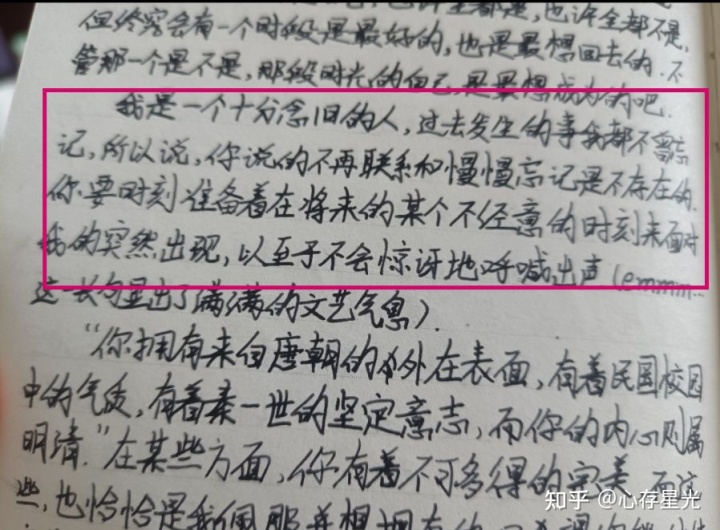 但终究会有一个时段是最好的，也是最想回去的.不
管那一个是不是，那段时光的自己是最想成为的吧.
我是一个十分念旧的人，过去发生的事我都不会忘
记，所以说，你说的不再联系和慢慢忘记是不存在的.
你要时刻准备着在将来的某个不经意的时刻来面对
我的突然出现，以至于不会惊讶地呼喊出声（emmm...
这一长句显出了满满的文艺气息）.
"你拥有来自唐朝的外在表面，有着民国校园
中的气质，有着秦一世的坚定意志，而你的内心则属
明清."在某些方面，你有着不可多得的完美，而这
些，也恰恰是我
知乎 @心存星光